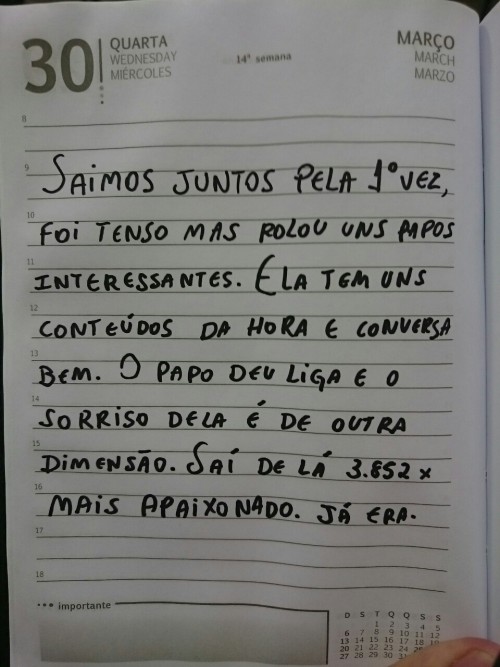 30
QUARTA
WEDNESDAY
MIÉRCOLES
14ª semana
MARÇO
MARCH
MARZO
8
9
SAIMOS JUNTOS PELA 1º VEZ,
10
FOI TENSO MAS ROLOU UNS PAPOS
11
INTERESSANTES. ELA TEM UNS
12
CONTEÚDOS DA HORA E CONVERSA
13
BEM. O PAPO DEU LIGA E O
14
SORRISO DELA É DE OUTRA
15
DIMENSÃO. SAÍ DE LÁ 3.852 x
16
MAIS APAIXONADO. JÁ ERA.
17
18
importante
D S T Q Q S S
1 2 3 4 5
6 7 8 9 10 11 12
13 14 15 16 17 18 19
20 21 22 23 24 25
27 28 29 30 31